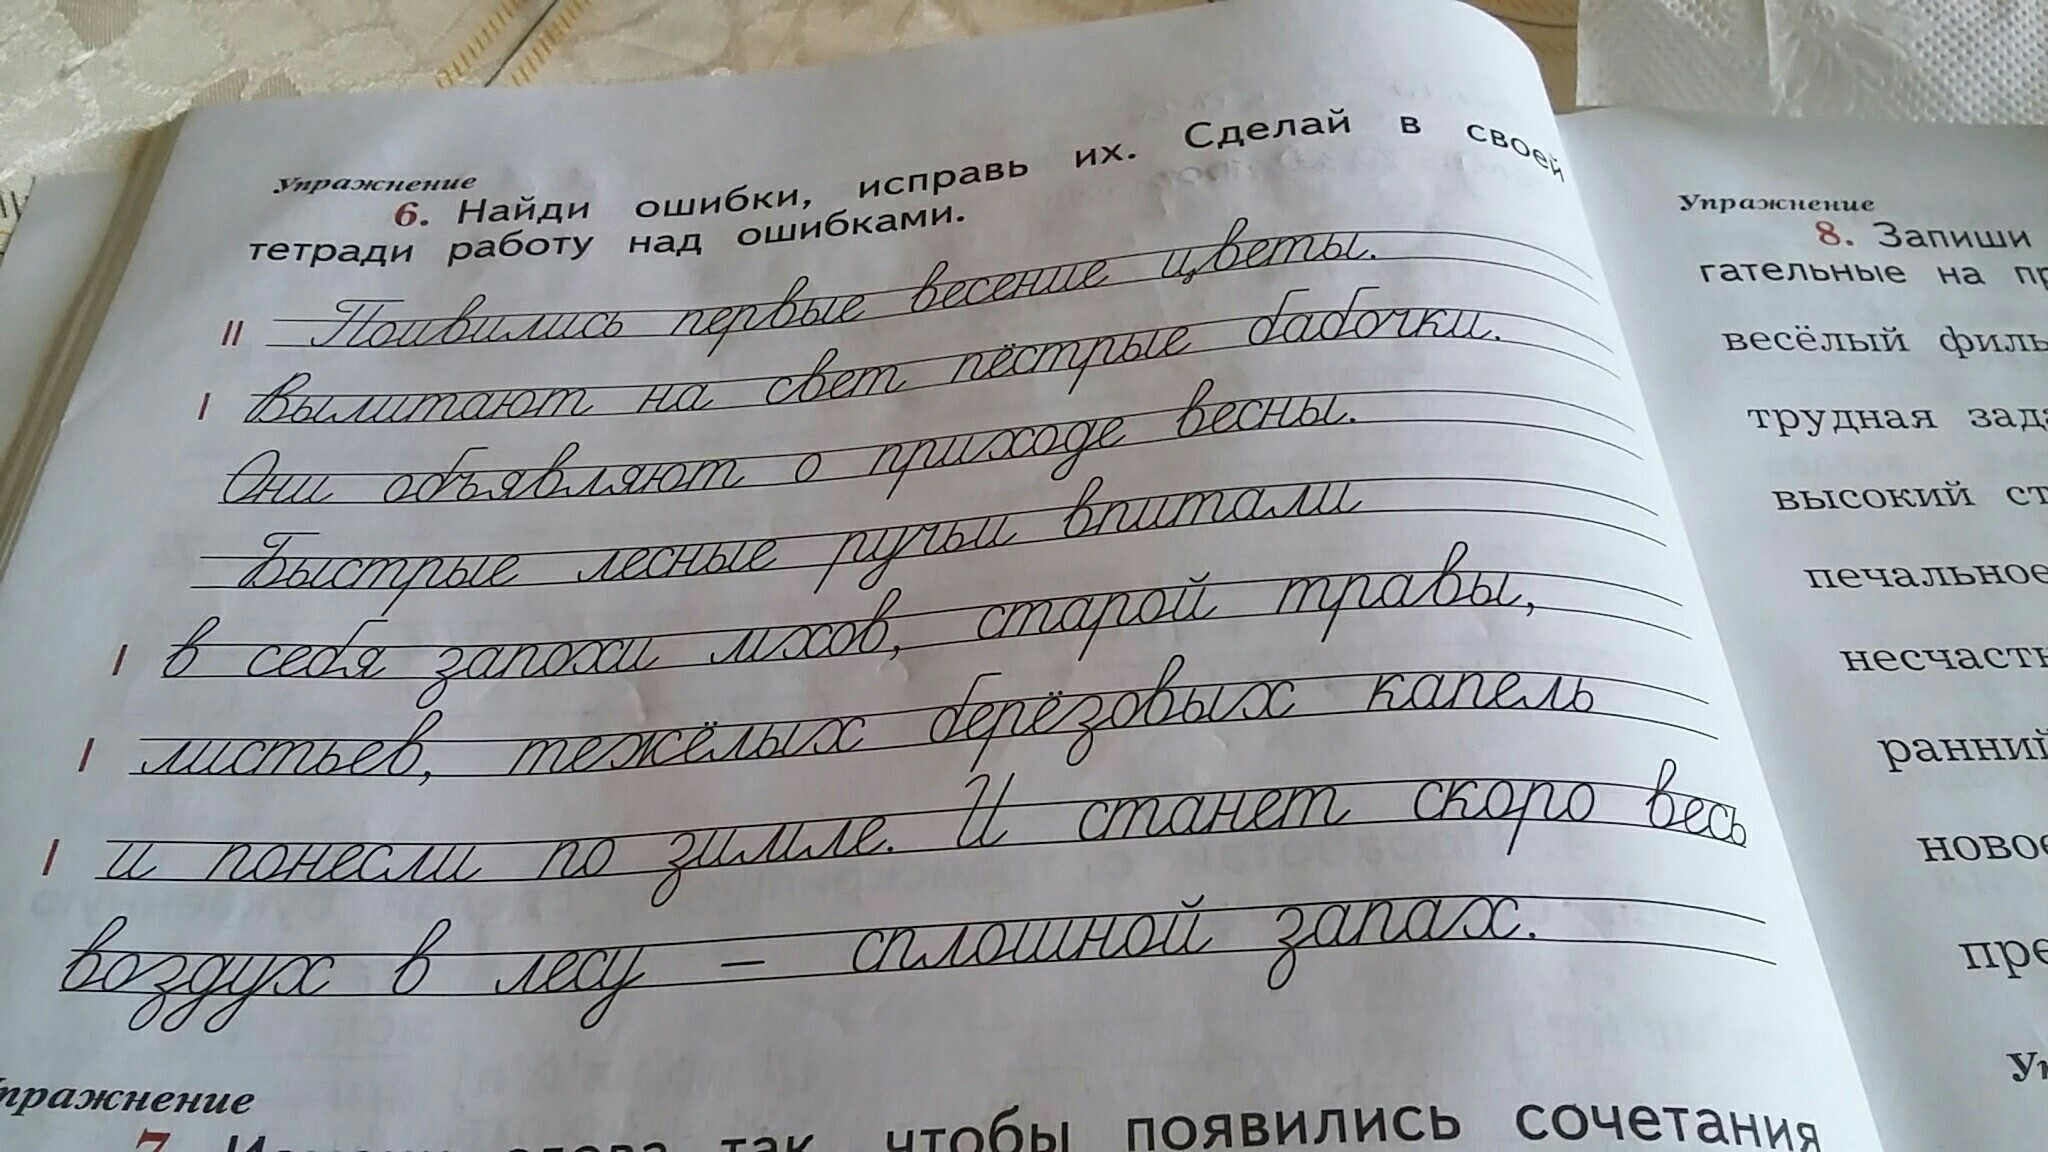 Упражнение
6. Найди ошибки, исправь их. Сделай в своей
тетради работу над ошибками.
II Поивились первые весение цветы.
I Вылитают на свет пёстрые бабочки.
Они объявляют о приходе весны.
Быстрые лесные ручьи впитали
I в себя запохи мхов, старой травы,
I листьев, тежёлых берёзовых капель
I и понесли по зимле. И станет скоро весь
воздух в лесу – сплошной запах.
Упражнение
7. слова так, чтобы появились сочетания
Упражнение
8. Запиши
гательные на пр
весёлый филь
трудная зада
высокий ст
печальное
несчастн
ранний
новое
пре